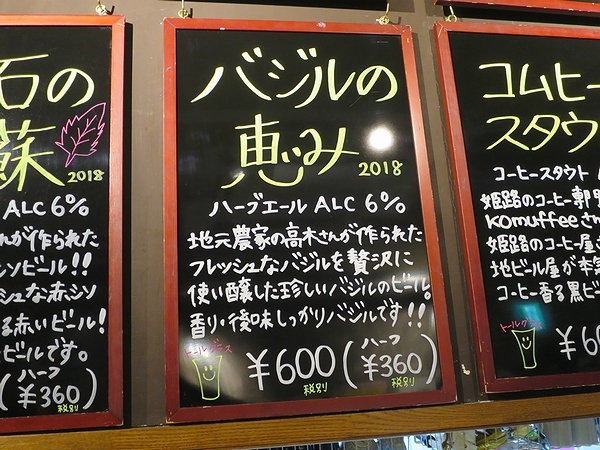 石の
蘇
2018
ALC 6%
んが作られた
ソビール!!
シュな赤シソ
る赤いビール!
ビールです。
(ハーフ ¥360)
税別
バジルの
恵み
2018
ハーブエール ALC 6%
地元農家の高木さんが作られた
フレッシュなバジルを贅沢に
使い醸した珍しいバジルのビール。
香り・後味しっかりバジルです!!
トールグラス
¥600(ハーフ ¥360)
税別 税別
コムヒー
スタウ
2018
コーヒースタウト
姫路のコーヒー専門
KOmuffeeさん
姫路のコーヒー屋
地ビール屋が本気
コーヒー香る黒ビ
トールグラ
¥60